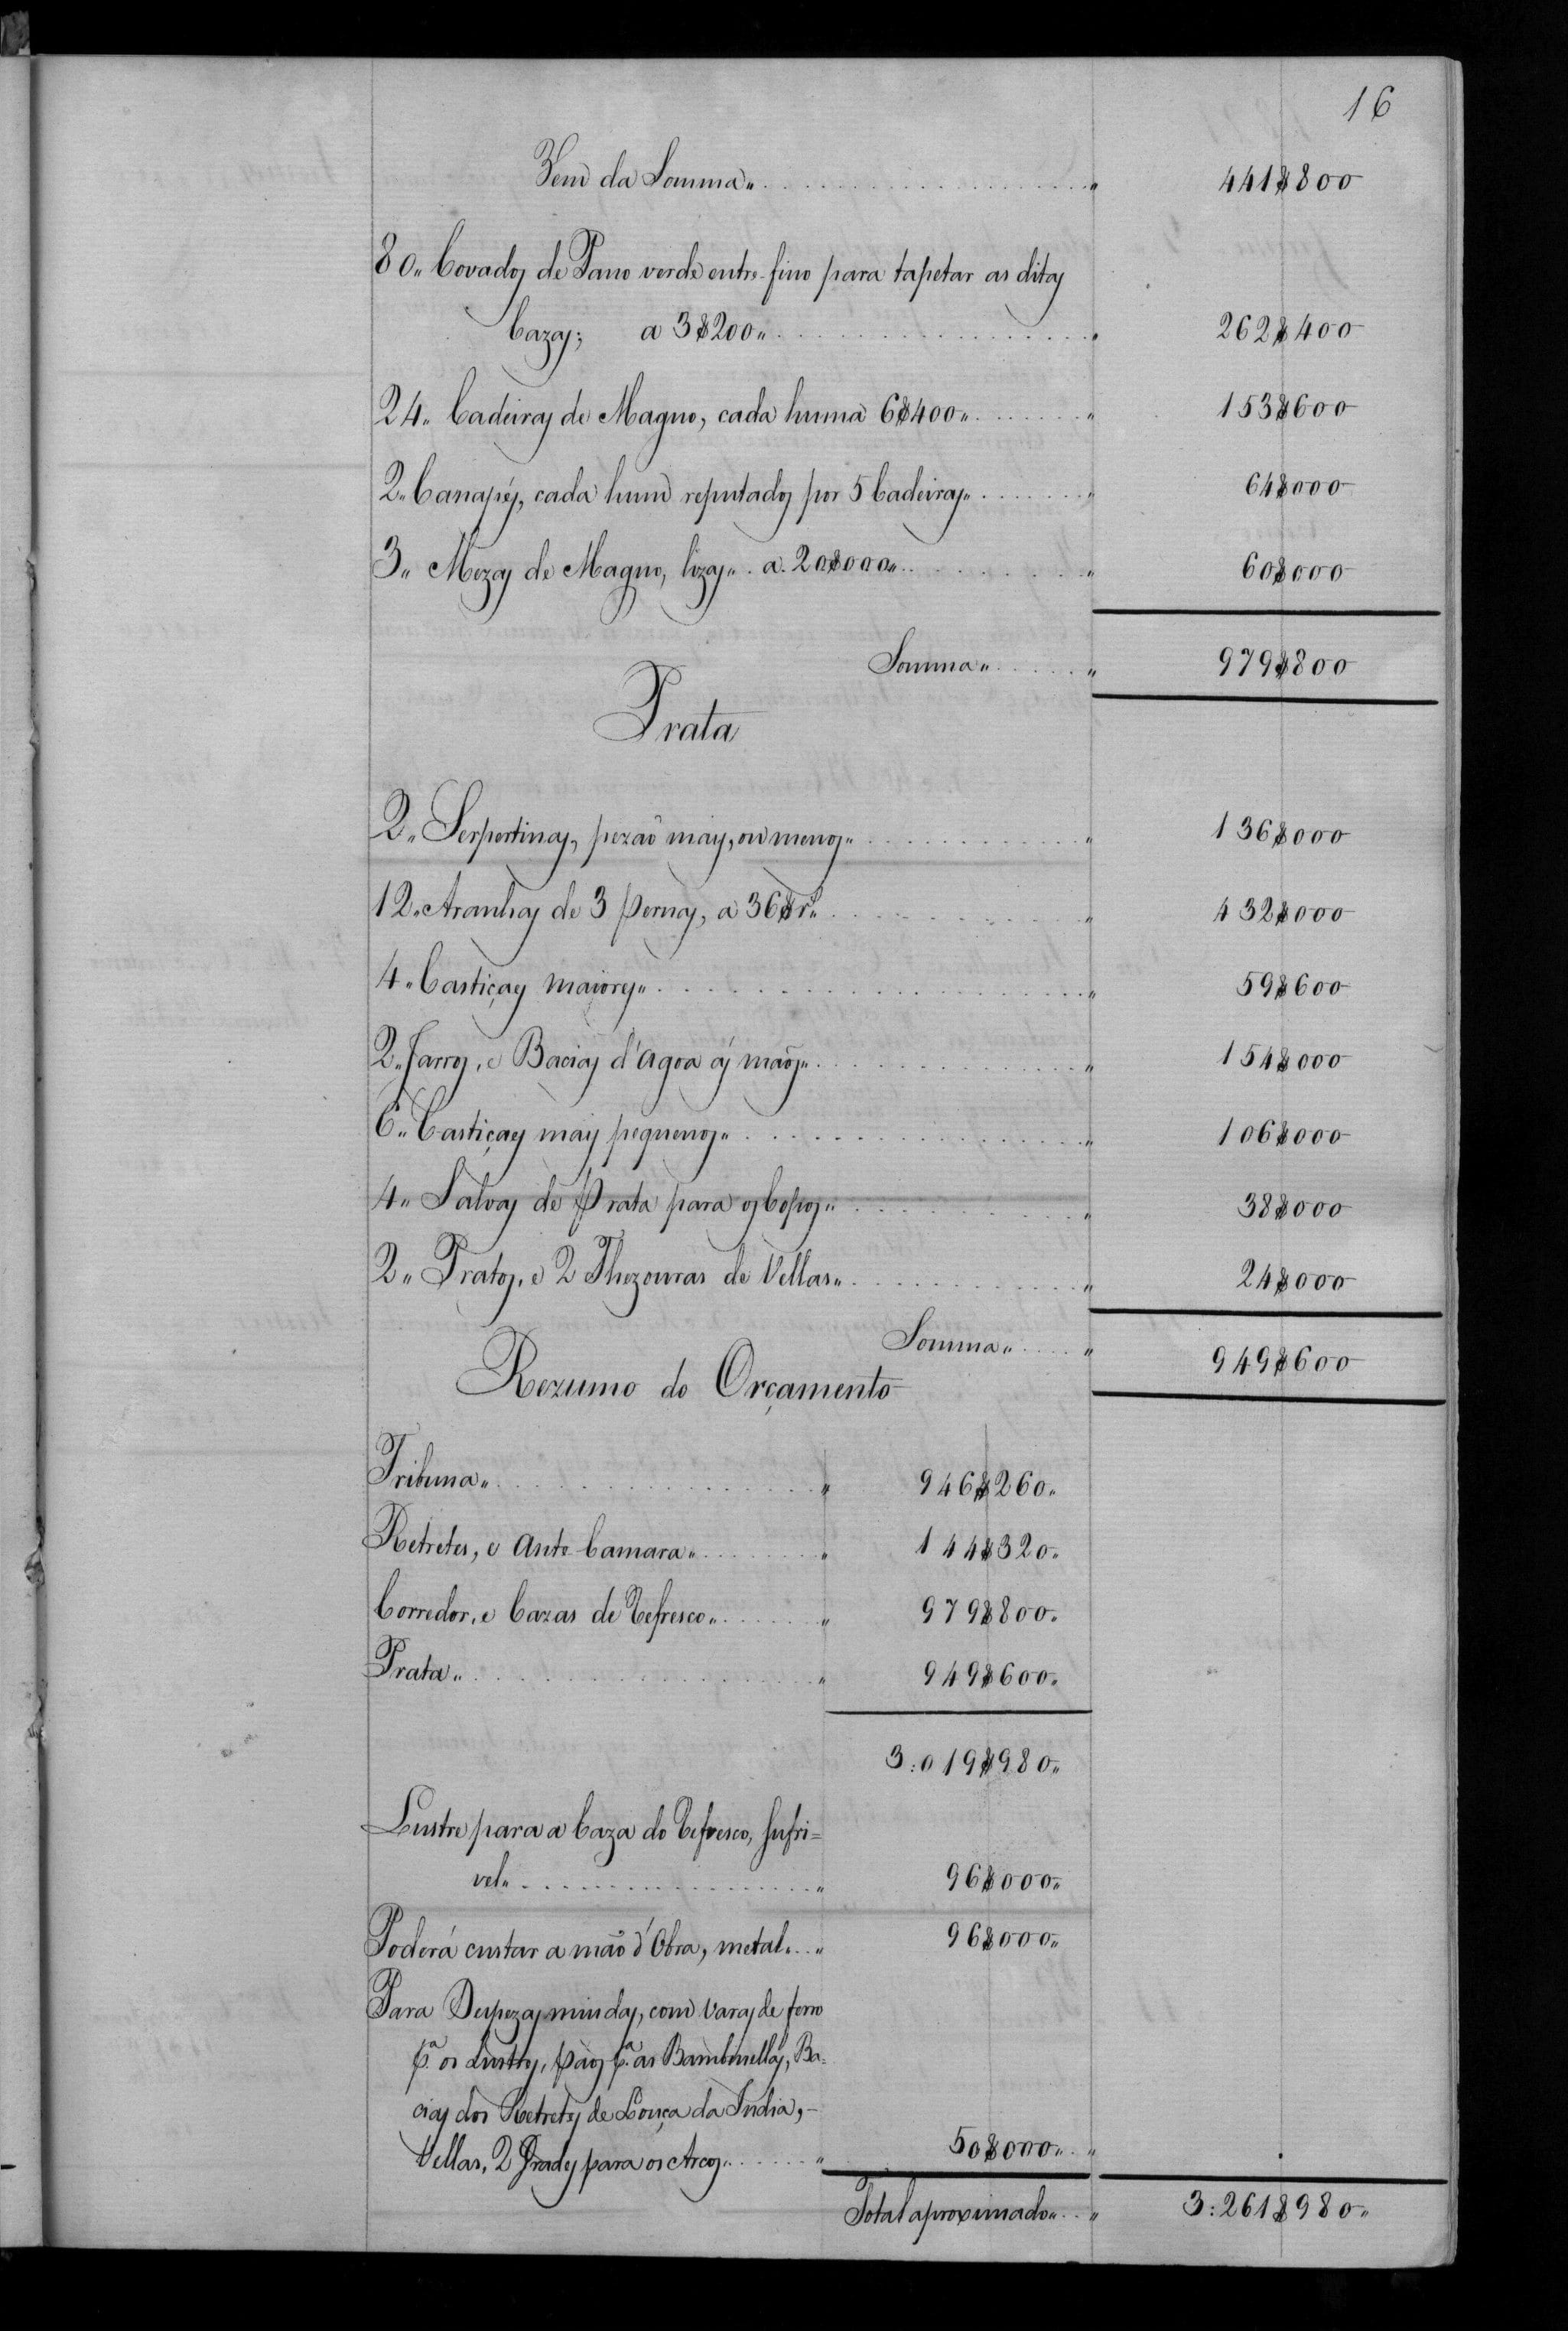 16
Vem da Somma„ . . . . „ 441$800
80„ Covados de Pano verde entre-fino para tapetar as ditas
Cazas; a 3$200„ . . . . „ 262$400
24„ Cadeiras de Magno, cada huma 6$400„ . . . . „ 153$600
2„ Canapés, cada hum reputados por 5 Cadeiras„ . . . . „ 64$000
3„ Mezas de Magno, lizas„ . a 20$000„ . . . . „ 60$000
Somma„ . . . . „ 979$800
Prata
2„ Serpertinas, pezaõ mais, ou menos„ . . . . „ 136$000
12„ Aranhas de 3 pernas, a 36$rs„ . . . . „ 432$000
4„ Castiçaes maiores„ . . . . „ 59$600
2„ Jarros, e Bacias d'Agoa ás mãos„ . . . . „ 154$000
6„ Castiçaes mais pequenos„ . . . . „ 106$000
4„ Salvas de Prata para os Copos„ . . . . „ 38$000
2„ Pratos, e 2 Thezouras de Vellas„ . . . . „ 24$000
Somma„ . . . . „ 949$600
Rezumo do Orçamento
Tribuna„ . . . . „ 946$260„
Retretes, e Ante-Camara„ . . . . „ 144$320„
Corredor, e Cazas de Refresco„ . . . . „ 979$800„
Prata„ . . . . „ 949$600„
3:019$980„
Lustre para a Caza do Refresco, sufri=
vel„ . . . . „ 96$000„
Poderá custar a mão d'Obra, metal„ . . „ 96$000„
Para Despezas miudas, com Varas de ferro
p.ª os Lustres, páos p.ª as Bambinellas, Ba=
cias dos Retretes de Louça da India,-
Vellas, 2 Grades para os Arcos„ . . . . „ 50$000„ . . „
Total aproximado„ . . „ 3:261$980„